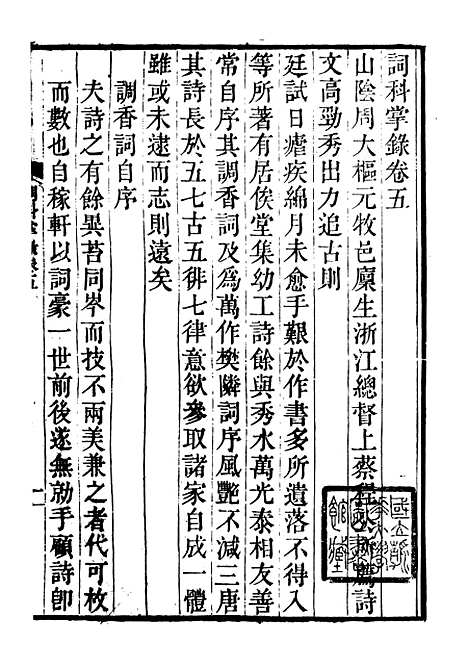 詞科掌錄卷五
山陰周大樞元牧邑廩生浙江總督上蔡程公所薦詩
文高勁秀出力追古則
廷試日瘧疾綿月未愈手艱於作書多所遺落不得入
等所著有居俟堂集幼工詩餘與秀水萬光泰相友善
常自序其調香詞及爲萬作樊隣詞序風艷不減三唐
其詩長於五七古五徘七律意欲參取諸家自成一體
雖或未逮而志則遠矣
調香詞自序
夫詩之有餘異苔同岑而技不兩美兼之者代可枚
而數也自稼軒以詞豪一世前後遂無勍手顧詩卽